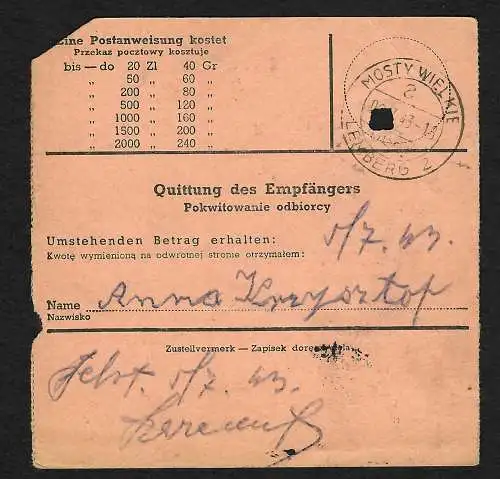 Eine Postanweisung kostet
Przekaz pocztowy kosztuje
bis — do 20 Zl 40 Gr
„ „ 50 „ 60 „
„ „ 200 „ 80 „
„ „ 500 „ 120 „
„ „ 1000 „ 160 „
„ „ 1500 „ 200 „
„ „ 2000 „ 240 „
MOSTY WIELKIE
2
LEMBERG 2
Quittung des Empfängers
Pokwitowanie odbiorcy
Umstehenden Betrag erhalten: 5/7. 43.
Kwotę wymienioną na odwrotnej stronie otrzymałem:
Name Anna Krzysztof
Nazwisko
Zustellvermerk — Zapisek
5/7. 43.